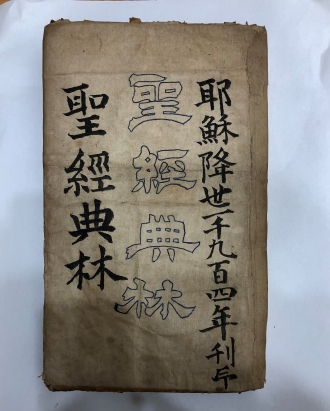 耶穌降世一千九百四年刊
聖經典林
聖經典林